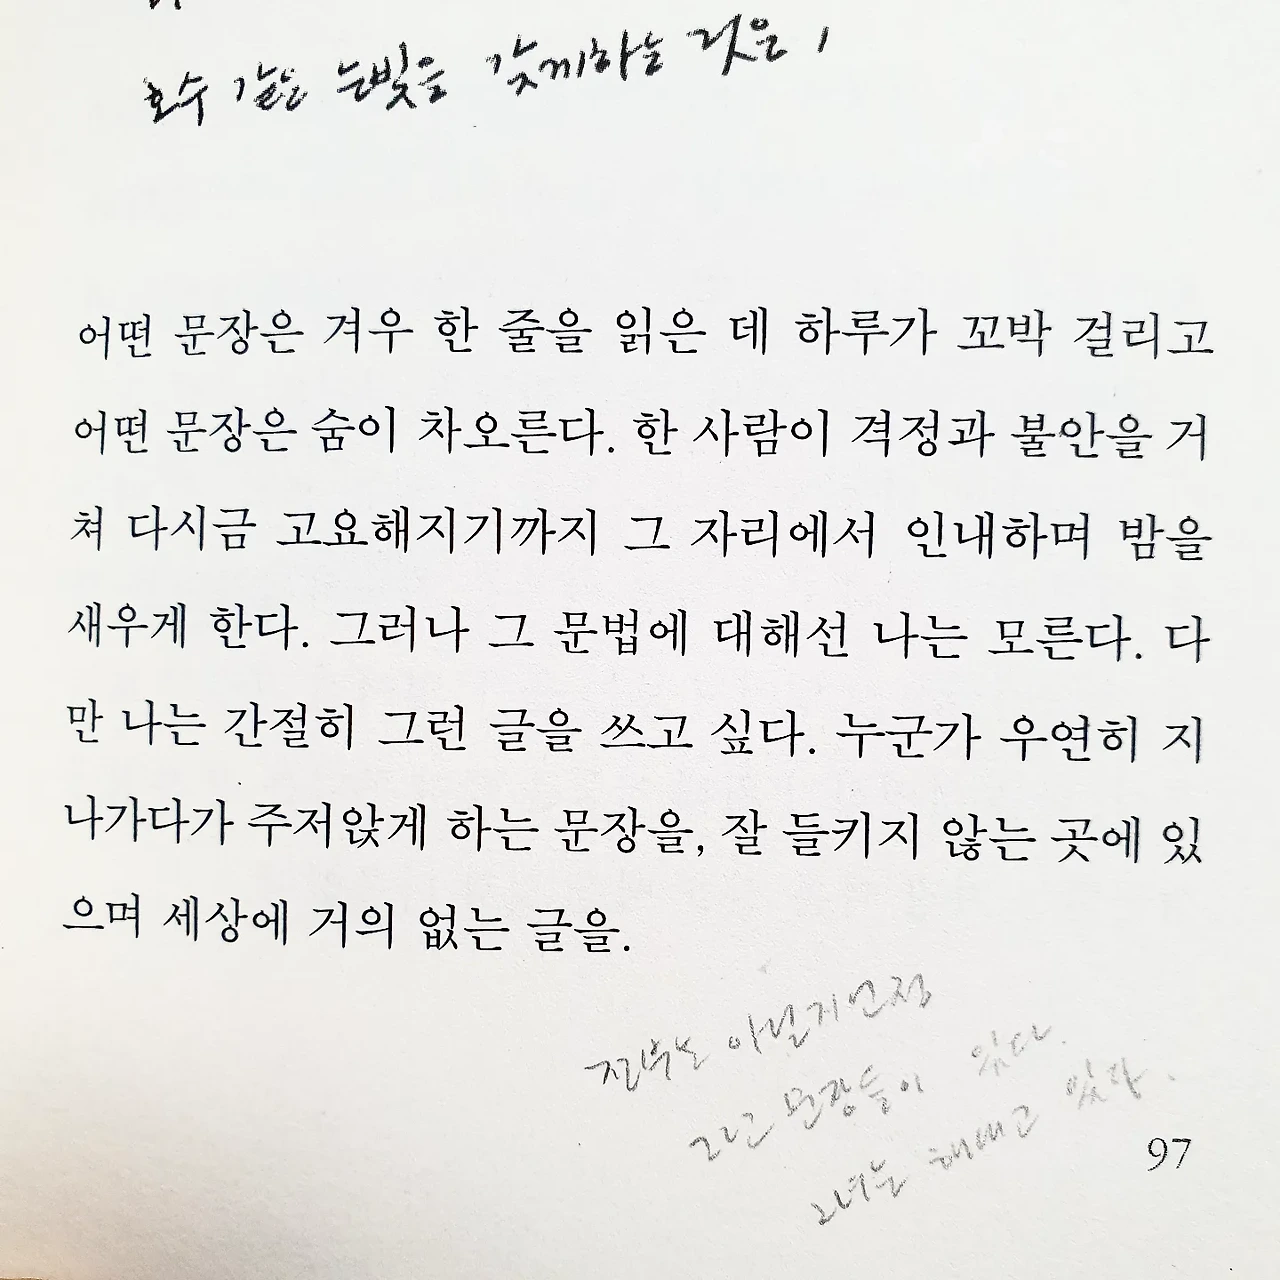 호수 같은 눈빛을 갖게하는 것은,
어떤 문장은 겨우 한 줄을 읽은 데 하루가 꼬박 걸리고
어떤 문장은 숨이 차오른다. 한 사람이 격정과 불안을 거
쳐 다시금 고요해지기까지 그 자리에서 인내하며 밤을
새우게 한다. 그러나 그 문법에 대해선 나는 모른다. 다
만 나는 간절히 그런 글을 쓰고 싶다. 누군가 우연히 지
나가다가 주저앉게 하는 문장을, 잘 들키지 않는 곳에 있
으며 세상에 거의 없는 글을.
전부는 아닐지언정
그런 문장들이 있다.
그녀는 해내고 있다.
97